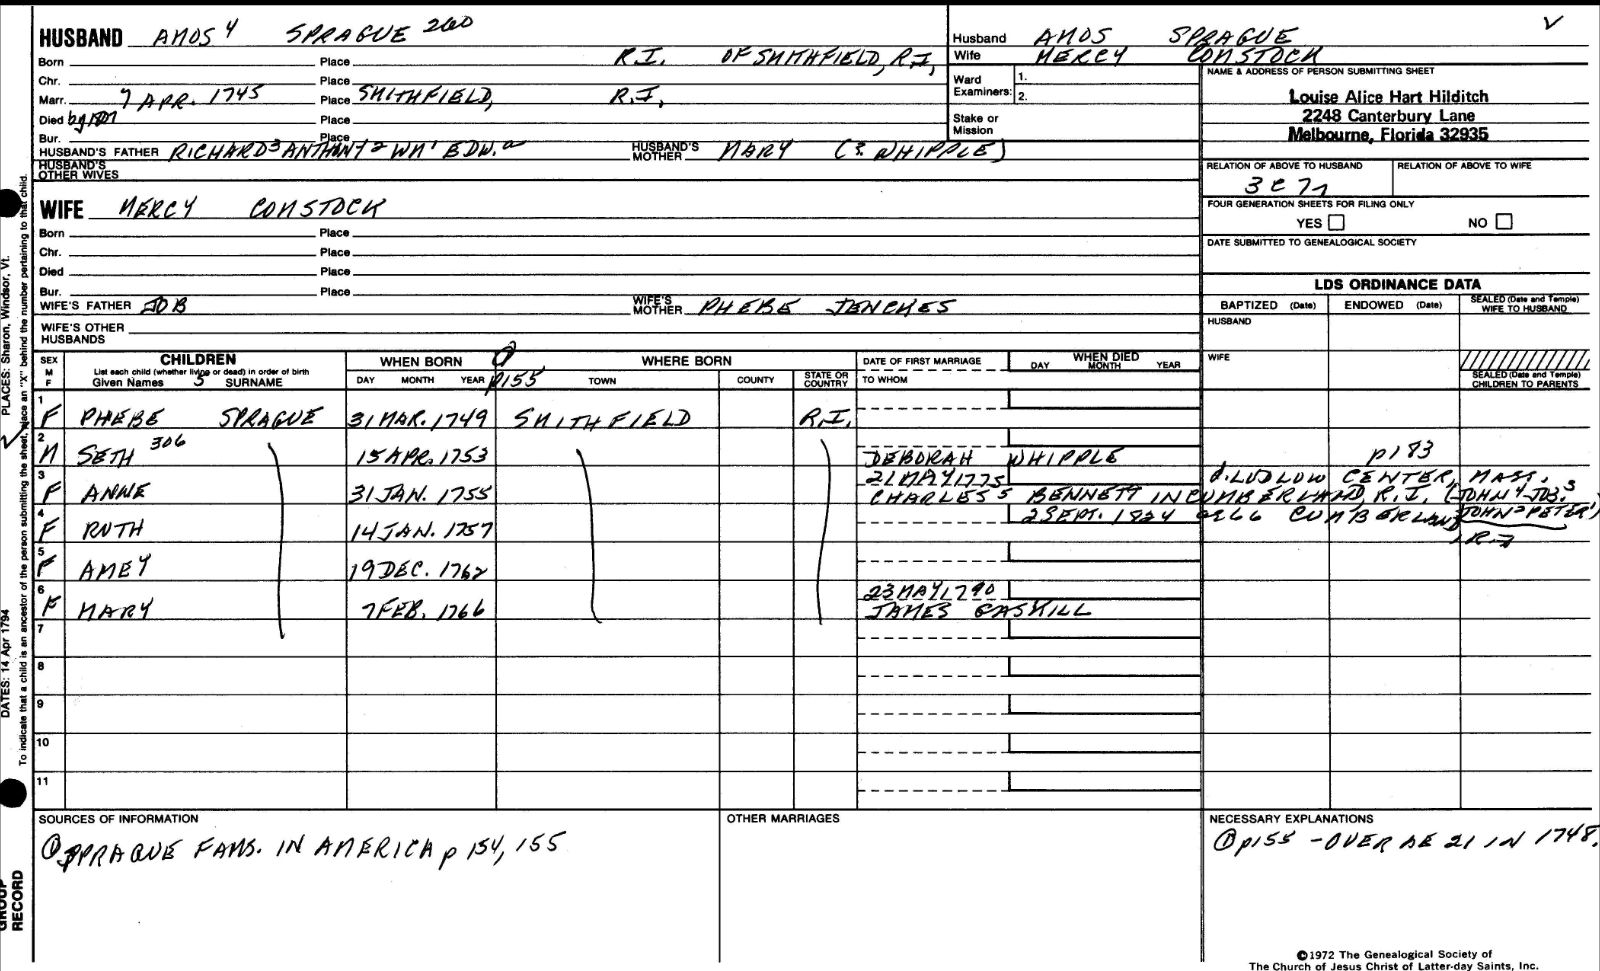 HUSBAND AMOS 4 SPRAGUE 260
Born Place R.I. OF SMITHFIELD, R.I,
Chr. Place
Marr. 7 APR. 1745 Place SMITHFIELD, R.I,
Died Place
Bur. Place
HUSBAND'S FATHER RICHARD 3 ANTHONY 2 WM 1 EDW. a HUSBAND'S MOTHER MARY (? WHIPPLE)
HUSBAND'S OTHER WIVES
Husband AMOS SPRAGUE
Wife MERCY COMSTOCK
Ward Examiners: 1.
2.
Stake or Mission
NAME & ADDRESS OF PERSON SUBMITTING SHEET
Louise Alice Hart Hilditch
2248 Canterbury Lane
Melbourne, Florida 32935
RELATION OF ABOVE TO HUSBAND RELATION OF ABOVE TO WIFE
3 C 7r
FOUR GENERATION SHEETS FOR FILING ONLY
YES NO
DATE SUBMITTED TO GENEALOGICAL SOCIETY
WIFE MERCY COMSTOCK
Born Place
Chr. Place
Died Place
Bur. Place
WIFE'S FATHER JOB WIFE'S MOTHER PHEBE JENCKES
WIFE'S OTHER HUSBANDS
LDS ORDINANCE DATA
BAPTIZED (Date) ENDOWED (Date) SEALED (Date and Temple) WIFE TO HUSBAND
HUSBAND
WIFE
SEALED (Date and Temple) CHILDREN TO PARENTS
SEX M F
CHILDREN
List each child (whether living or dead) in order of birth
Given Names 5 SURNAME
WHEN BORN
DAY MONTH YEAR p155
WHERE BORN
TOWN COUNTY STATE OR COUNTRY
DATE OF FIRST MARRIAGE
TO WHOM
WHEN DIED
DAY MONTH YEAR
1 F PHEBE SPRAGUE 31 MAR. 1749 SMITHFIELD R.I.
2 M SETH 306 15 APR. 1753 DEBORAH WHIPPLE p183
3 F ANNE 31 JAN. 1755 21 MAY 1775 d. LUDLOW CENTER, MASS.
CHARLES 5 BENNETT IN CUMBERLAND, R.I. (JOHN 4 JOB 3
4 F RUTH 14 JAN. 1757 2 SEPT. 1824 ae 66 CUMBERLAND JOHN 2 PETER 1)
R.I
5 F AMEY 19 DEC. 1762
6 F MARY 7 FEB. 1766 23 MAY 1790
JAMES GASKILL
7
8
9
10
11
SOURCES OF INFORMATION
① SPRAGUE FAMS. IN AMERICA p 154, 155
OTHER MARRIAGES
NECESSARY EXPLANATIONS
① p155 - OVER AE 21 IN 1748.
©1972 The Genealogical Society of
The Church of Jesus Christ of Latter-day Saints, Inc.
PLACES: Sharon, Windsor, Vt.
DATES: 14 Apr 1794
To indicate that a child is an ancestor of the person submitting the sheet, place an "X" behind the number pertaining to that child.
GROUP RECORD